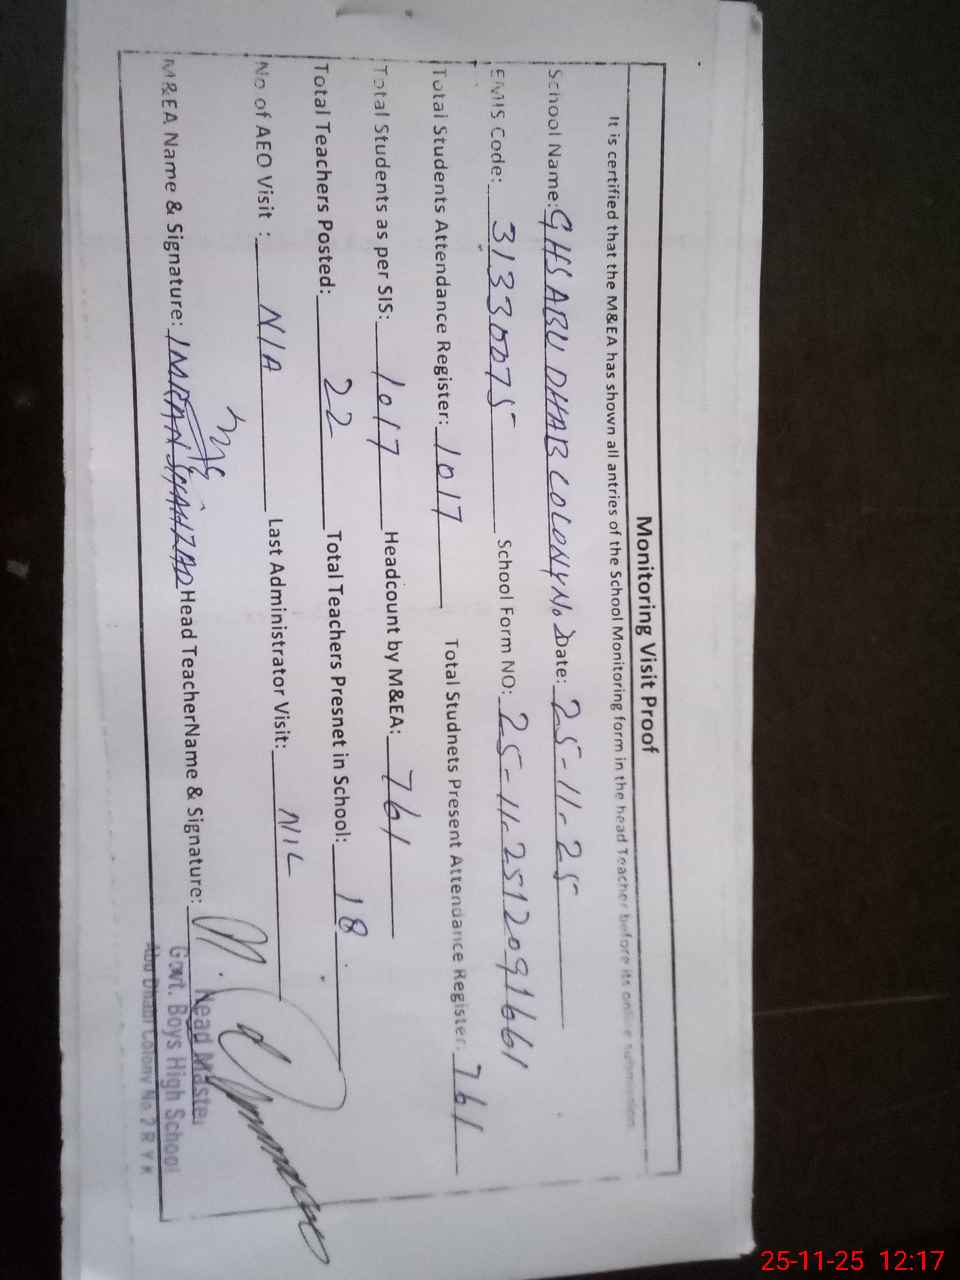 Monitoring Visit Proof
It is certified that the M&EA has shown all antries of the School Monitoring form in the head Teacher before its online submission.
School Name: GHS ABU DHAB COLONY No 2 Date: 25-11-25
EMIS Code: 31330075 School Form NO: 25-11-2512091661
Total Students Attendance Register: 1017 Total Studnets Present Attendance Register: 761
Total Students as per SIS: 1017 Headcount by M&EA: 761
Total Teachers Posted: 22 Total Teachers Presnet in School: 18
No of AEO Visit : N/A Last Administrator Visit: NIL
M&EA Name & Signature: IMRAN SHAHZAD Head TeacherName & Signature:
Head Master
Govt. Boys High School
Abu Dhabi Colony No.2 R Y K
25-11-25 12:17